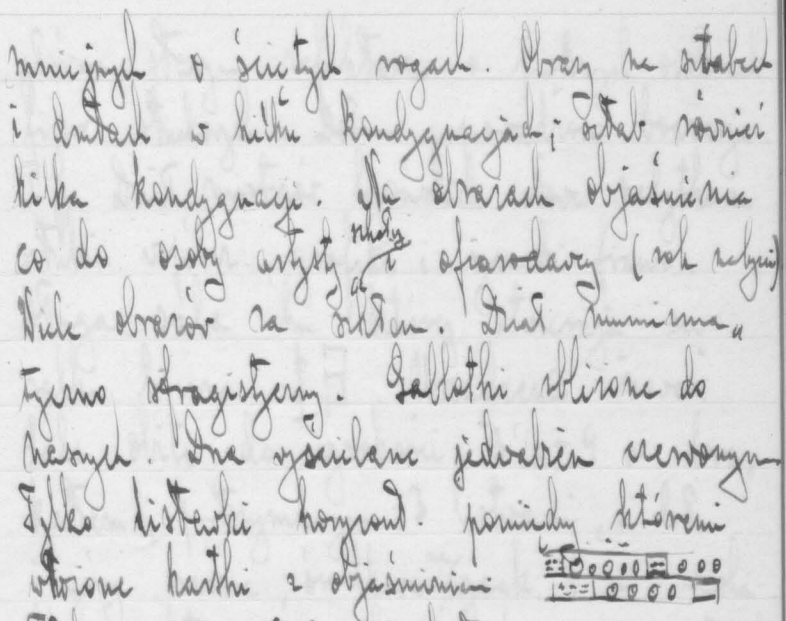 mniejszych o ściętych rogach. Obrazy na sztabach
i drutach w kilku kondygnacjach; sztab również
kilka kondygnacji. Na obrazach objaśnienia
co do osoby artysty szkoły i ofiarodawcy (rok nabycia)
Wiele obrazów za szkłem. Dział numizma„
tyczno sfragistyczny. Gablotki zbliżone do
naszych. Dna wyścielane jedwabiem czerwonym
Tylko listewki poziome pomiędzy któremi
włożone kartki z objaśnieniem